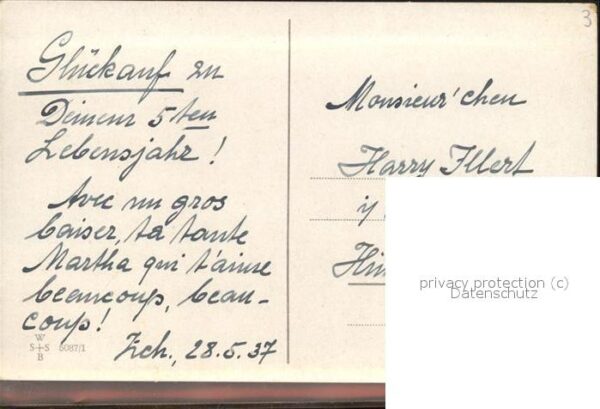 3
Glückauf zu
Deinem 5ten
Lebensjahr!
Avec un gros
baiser, ta tante
Martha qui t'aime
beaucoup, beau-
coup!
Zch., 28.5.37
W
S+S 5087/1
B
Monsieur'chen
Harry Illert
privacy protection (c)
Datenschutz